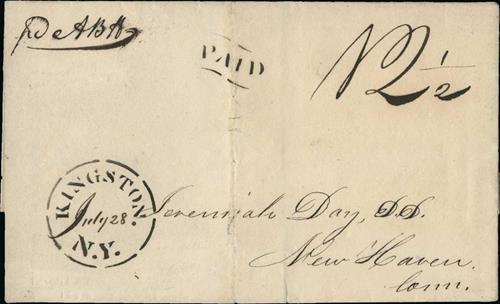 Pd ABH
PAID
12 1/2
KINGSTON
July 28
N.Y.
Jeremiah Day, D.D.
New Haven.
Conn.